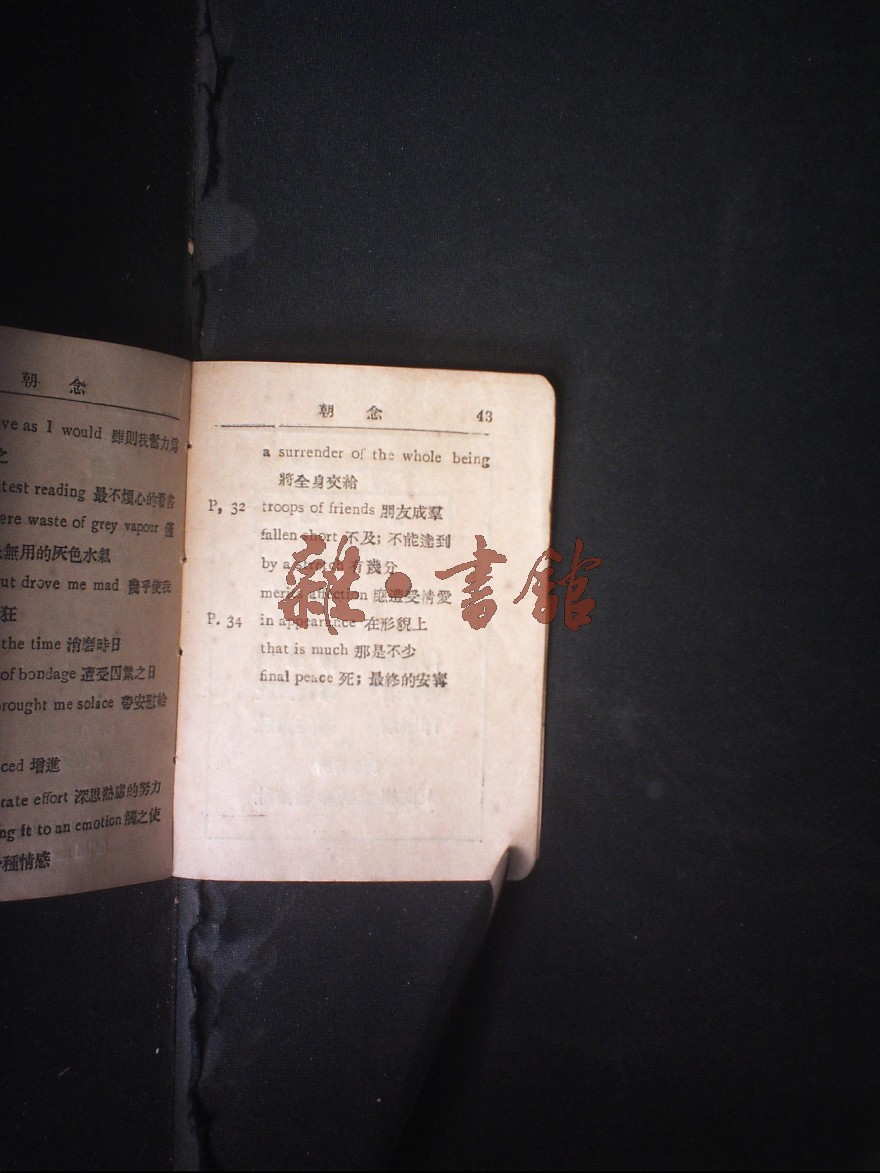 朝 念
ve as I would 雖則我奮力爲
之
test reading 最不煩心的看書
ere waste of grey vapour 僅
無用的灰色水氣
ut drove me mad 幾乎使我
狂
the time 消磨時日
of bondage 遭受囚縶之日
rought me solace 帶安慰給
ced 增進
rate effort 深思熟慮的努力
ng it to an emotion 觸之使
種情感
朝 念 43
a surrender of the whole being
將全身交給
P, 32 troops of friends 朋友成羣
fallen short 不及; 不能達到
by a stretch 有幾分
merits affection 應遭受情愛
P. 34 in appearance 在形貌上
that is much 那是不少
final peace 死; 最終的安寗
雜·書館